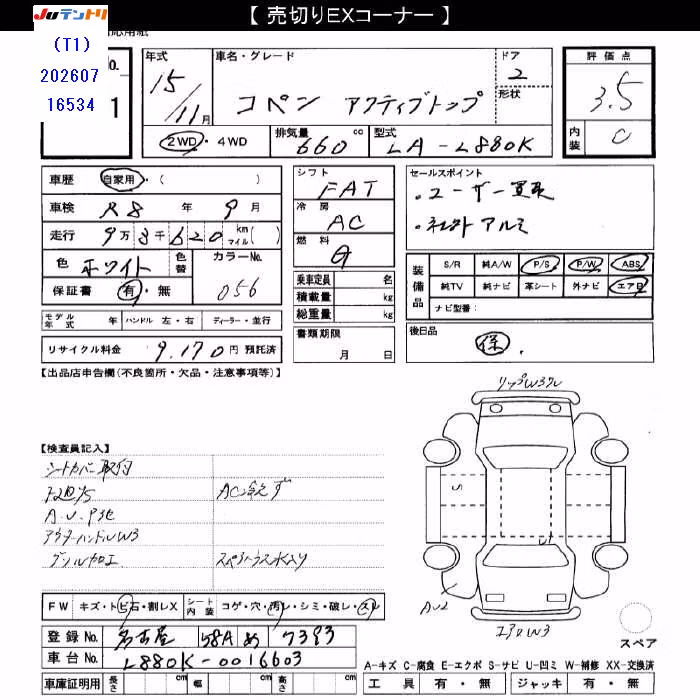 【 売切りEXコーナー 】
JUテントリ
(T1)
202607
16534
1
年式 15/11月
車名・グレード コペン アクティブトップ
ドア 2
形状
評価点 3.5
内装 C
2WD・4WD
排気量 660 cc
型式 LA-L880K
車歴 自家用・( )
車検 R8 年 9 月
走行 9万3千620 km マイル( )
色 ホワイト 色替 カラーNo. 056
保証書 有・無
モデル年式 年 ハンドル 左・右 ディーラー・並行
リサイクル料金 9,170円 預託済
シフト FAT
冷房 AC
燃料 G
乗車定員 名
積載量 kg
総重量 kg
書類期限 月 日
セールスポイント
・ユーザー買取
・社外アルミ
装備品 S/R 純A/W P/S P/W ABS
純TV 純ナビ 革シート 外ナビ エアB
ナビ型番:
後日品 保.
【出品店申告欄(不良箇所・欠品・注意事項等)】
【検査員記入】
シートカバー取付
AC冷えず
アウターハンドルW3
グリル加工
リップW3ワレ
S
U1
AU2
エアロW3
スペア
FW キズ・トビ石・割レX シート内装 コゲ・穴・汚レ・シミ・破レ・スレ
登録No. 名古屋 58A め 7393
車台No. L880K-0016603
車庫証明用 長さ cm 幅 cm 高さ cm
A-キズ C-腐食 E-エクボ S-サビ U-凹ミ W-補修 XX-交換済
工具 有・無 ジャッキ 有・無